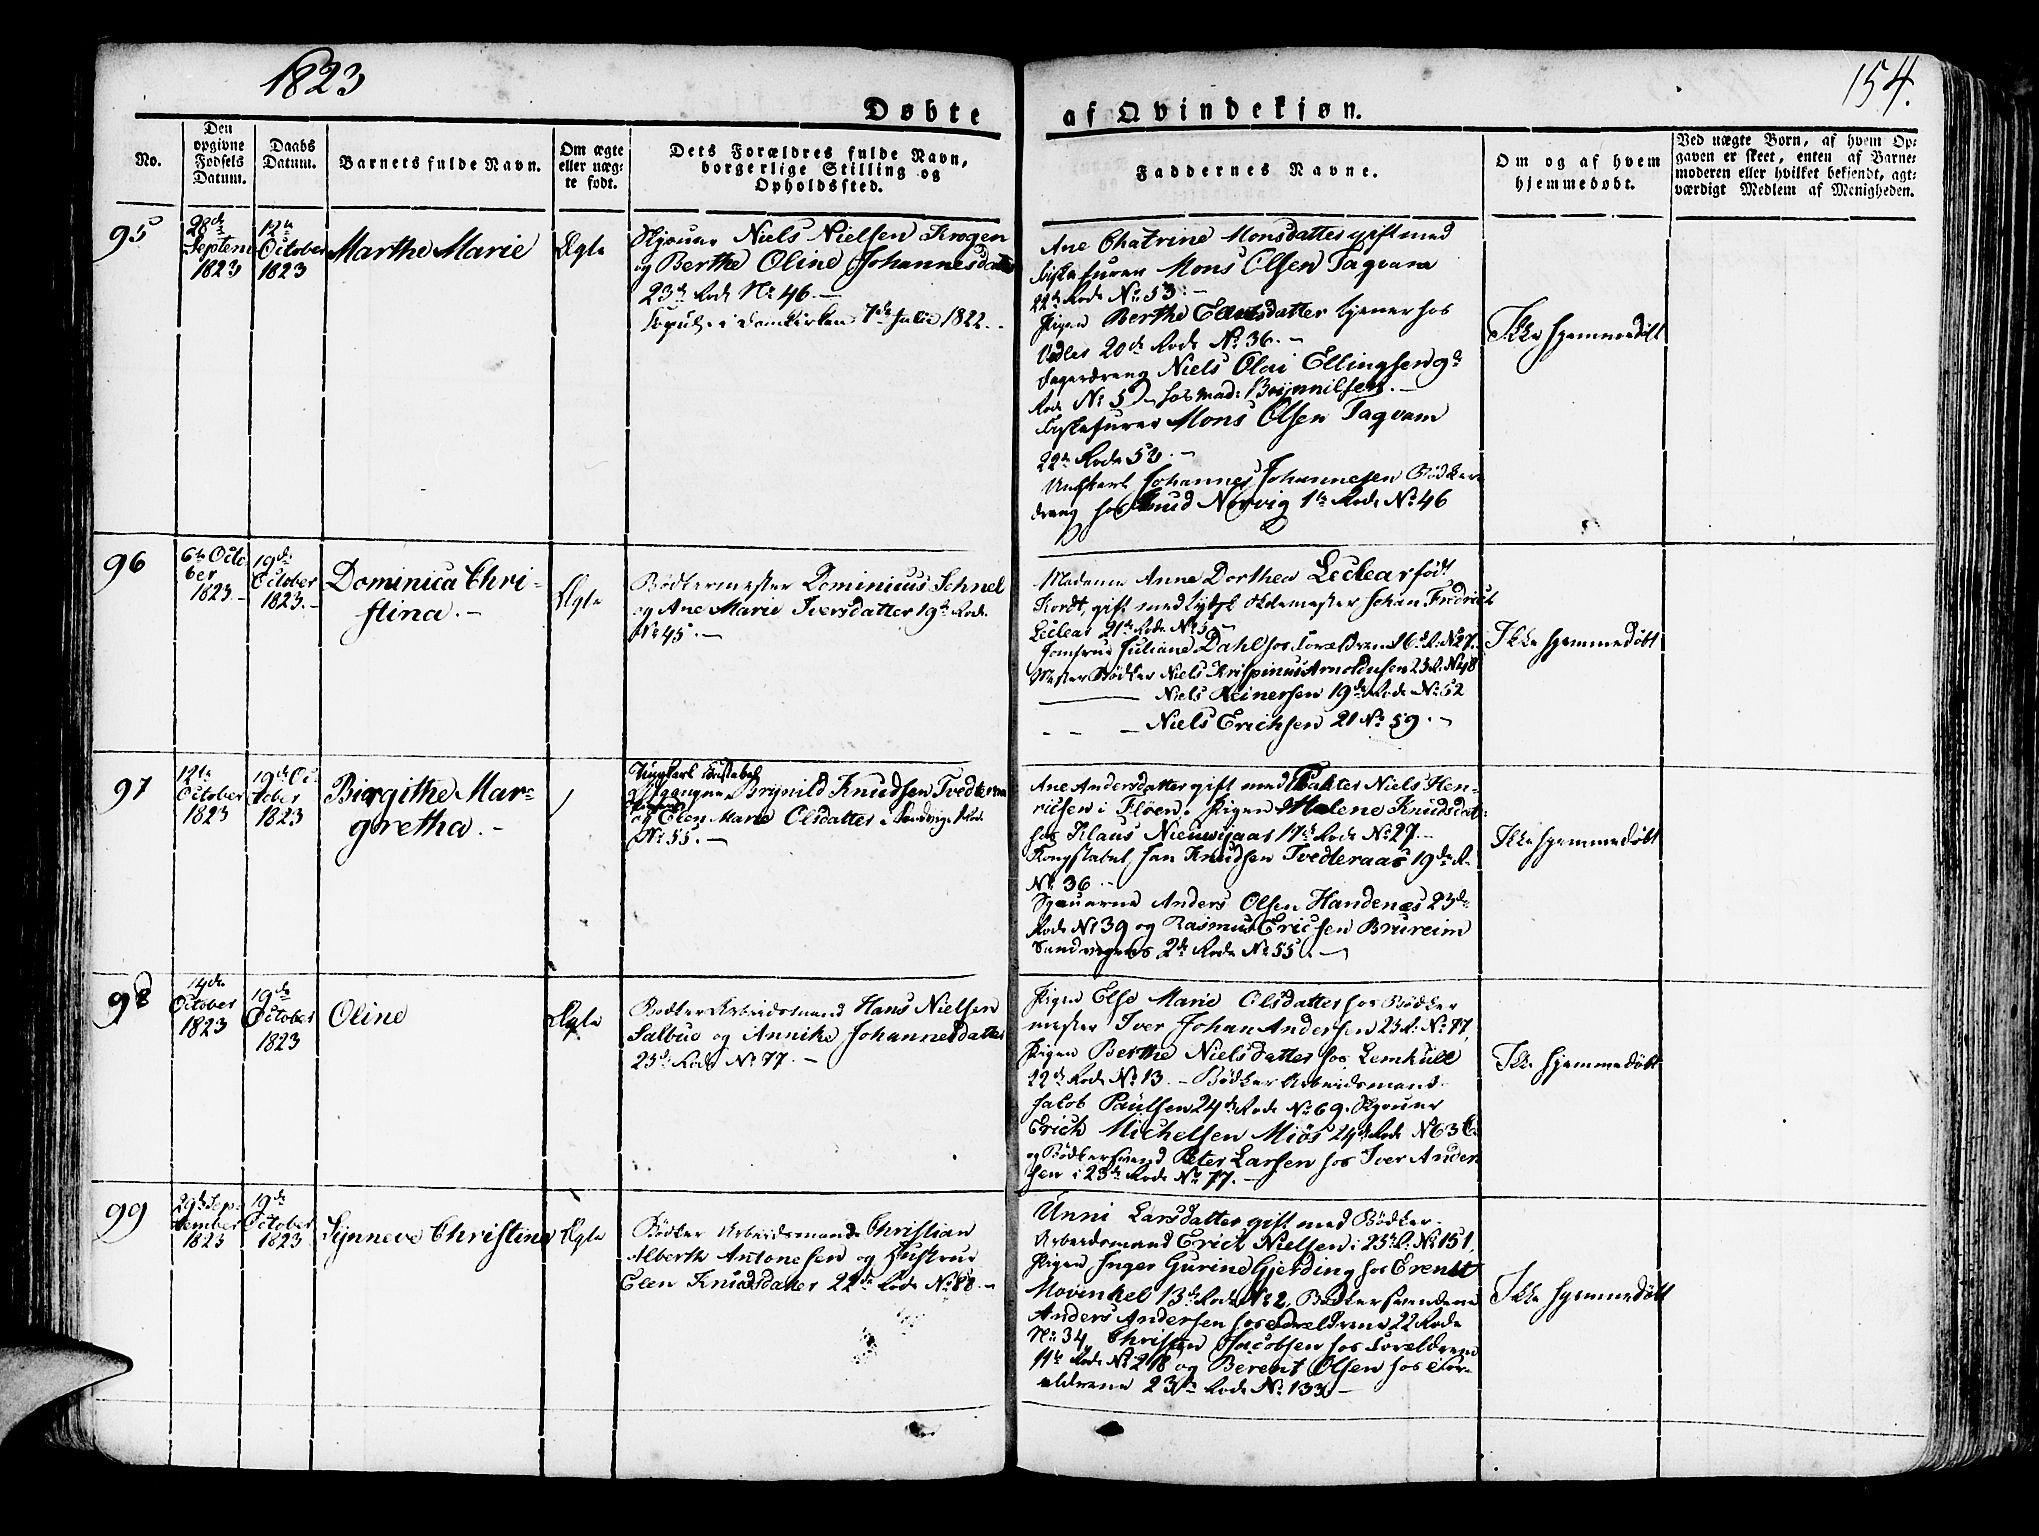 1823
154.
Døbte af Qvindekjøn.
No.
Den
opgivne
Fødsels
Datum.
Daabs
Datum.
Barnets fulde Navn.
Om ægte
eller uæg-
te født.
Dets Forældres fulde Navn,
borgerlige Stilling og
Opholdssted.
Faddernes Navne.
Om og af hvem
hjemmedøbt.
Ved uægte Børn, af hvem Op-
gaven er skeet, enten af Barne-
moderen eller hvilket bekjendt, agt-
værdigt Medlem af Menigheden.
95
28de
Septem
1823
12te
October
1823
Marthe Marie
Ægte
Niels Nielsen Krogen
og Berthe Oline Johannesdatter
23de Rode No 46. —
i Domkirken 7de Julie 1822. -
Ane Chatrine Monsdatter gift med
Mons Olsen Tagvam
22de Rode No 53. -
Pigen Berthe Elensdatter tjener hos
20de Rode No 36. -
Niels Olai Ellingsen 9de
Rode No 5 hos Mad: Brynnilsen. -
Mons Olsen Tagvam
22de Rode 53. -
Ungkarl Johannes Johannesen Bødker-
dreng hos Knud Norvig 1te Rode No 46
Ikke hjemmedøbt
96
6te Octo
ber
1823. -
19de
October
1823. -
Dominica Chri-
stina. -
Ægte
Bødkermester Dominicus Schnel
og Ane Marie Iversdatter 19de Rode
No 45. —
Madame Anne Dorthea Leclear født
Kordt, gift med Johan Fredrich
Leclear 21de Rode No 5. -
Jomfrue Juliane Dahl hos Forældrene 16de R. No 27.
Mester Bødker Niels Krispinus Arnoldusen 23 R. No 48
Niels Reinersen 19de Rode No 52
Niels Erichsen 21 No 59. -
Ikke hjemmedøbt
97
12te
October
1823
19de Oc-
tober
1823
Birgithe Mar-
gretha. -
Brynild Knudsen Tvedteraas
og Elen Marie Olsdatter i Sandvigs Rode
No 55. —
Ane Andersdatter gift med Niels Hen-
richsen i Fløen. Pigen Malene Knudsdat-
hos Klaus Nieuwejaar 17de Rode No 27. -
Jan Knudsen Tvedteraas 19de R.
No 36 -
Anders Olsen Handenæs 23de
Rode No 39 og Rasmus Ericsen Brureim
2de Rode No 55. -
Ikke hjemmedøbt
98
14de
October
1823
19de
October
1823
Oline
Ægte
Bødker Arbeidsmand Hans Nielsen
Salbue og Annike Johannesdatter
23de Rode No 77. —
Pigen Else Marie Olsdatter hos Bødker
mester Iver Johan Andersen 23 R. No 77,
Pigen Berthe Nielsdatter hos Lemkull
22de Rode No 13. - Bødker Arbeidsmand
Jacob Paulsen 24de Rode No 69. Skjouer
Erick Michelsen Miøs 24de Rode No 63
og Bødkersvend Peter Larsen hos Iver Ander-
sen i 23de Rode No 77. -
Ikke hjemmedøbt
99
29de Sep-
tember
1823
19de
October
1823
Synneve Christina
Ægte
Bødker Arbeidsmand Christian
Alberth Antonesen og Hustrue
Elen Knudsdatter 22de Rode No 80. -
Unni Larsdatter gift med Bødker
Arbeidsmand Erick Nielsen i 23de R. No 151,
Pigen Inger Gurine Gjerding hos Erendt
Movinkel 13de Rode No 2, Bødkersvendene
Anders Andersen hos Forældrene 22 Rode
No 34, Christen Jacobsen hos Forældrene
No 218 og Berent Olsen hos For-
ældrene 23de Rode No 133. -
Ikke hjemmedøbt